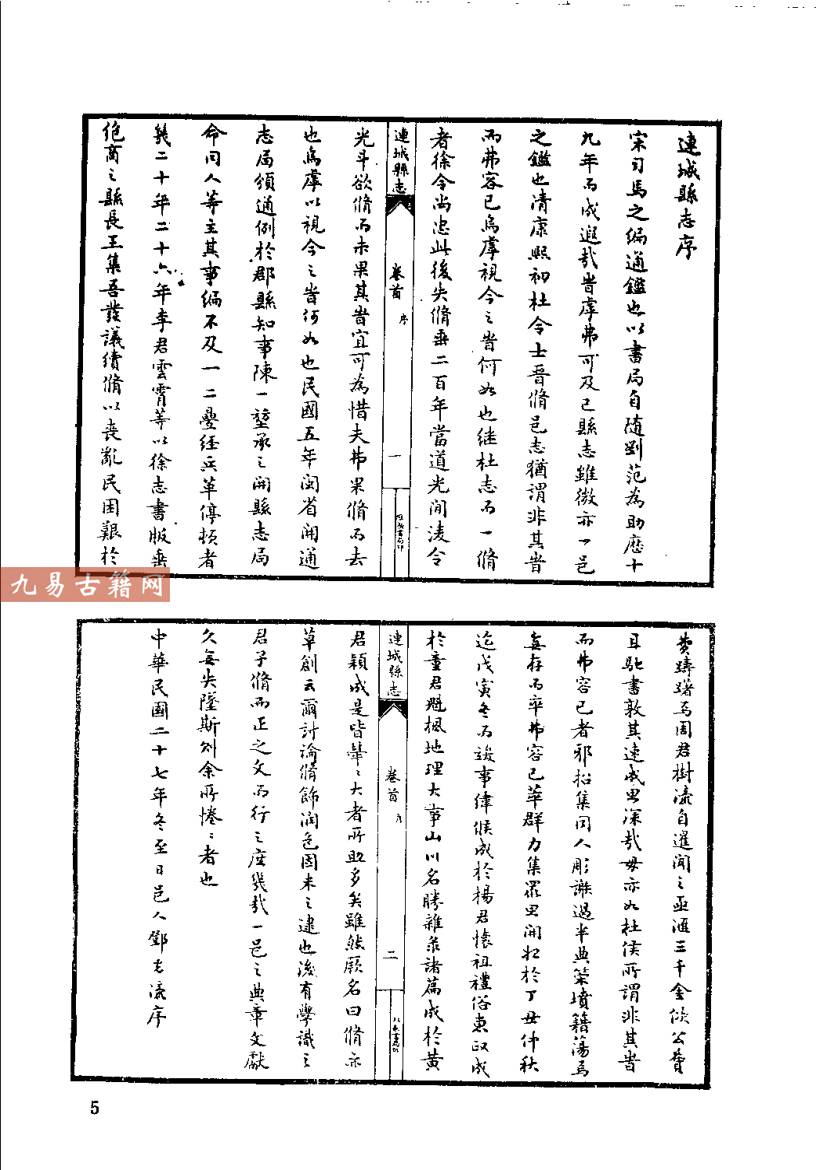 連城縣志序
宋司馬之編通鑑也以書局自隨劉范為助歷十
九年而成遐哉昔虖弗可及已縣志雖微亦一邑
之鑑也清康熙初杜令士晋脩邑志猶謂非其旹
而弗容已烏虖視今之旹何如也继杜志而一脩
者徐令尚忠此後失脩垂二百年當道光间淩令
連城縣志
卷首
序
一
光斗欲脩而未果其旹宜可為惜夫弗果脩而去
也烏虖以視今之旹何如也民國五年闽省開通
志局頒通例於郡縣知事陳一堃承之開縣志局
命同人等主其事编不及一二疊经兵革停頓者
幾二十年二十六年李君雲霄等以徐志書版垂
絶商之縣長王集吾發議續脩以喪亂民困艱於
九易古籍网
費躊躇焉周君树漋自暹闻之亟滙三千金佽公費
且馳書敦其速成思深哉毋亦如杜侯所謂非其旹
而弗容已者邪招集同人彫謝過半典策墳籍蕩焉
無存而卒弗容已萃群力集眾思開始於丁丑仲秋
迄戊寅冬而竣事律候成於楊君懷祖禮俗東叹成
於童君魁楓地理大事山川名勝雜彔諸篇成於黄
連城縣志
卷首
序
二
君穎成是皆犖〻大者所助多矣雖然厥名曰脩亦
草創云爾討論脩飾润色固未之逮也後有學識之
君子脩而正之文而行之庶幾哉一邑之典章文獻
久無失墜斯刘余所惓〻者也
中華民國二十七年冬至日邑人鄧光瀛序
5